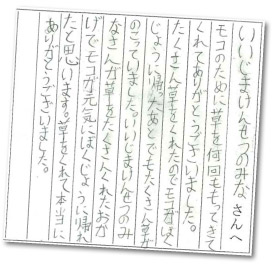 いいじまけんせつのみなさんへ
モコのために草を何回ももちてきて
くれてありがとうございました。
たくさん草をくれたのでモコがぼく
じょうに帰ったあとでもたくさん草が
のこっていました。いいじまけんせつのみ
なさんが草をたくさんくれたおか
げでモコが元気にぼくじょうに帰れ
たと思います。草をくれて本当に
ありがとうございました。